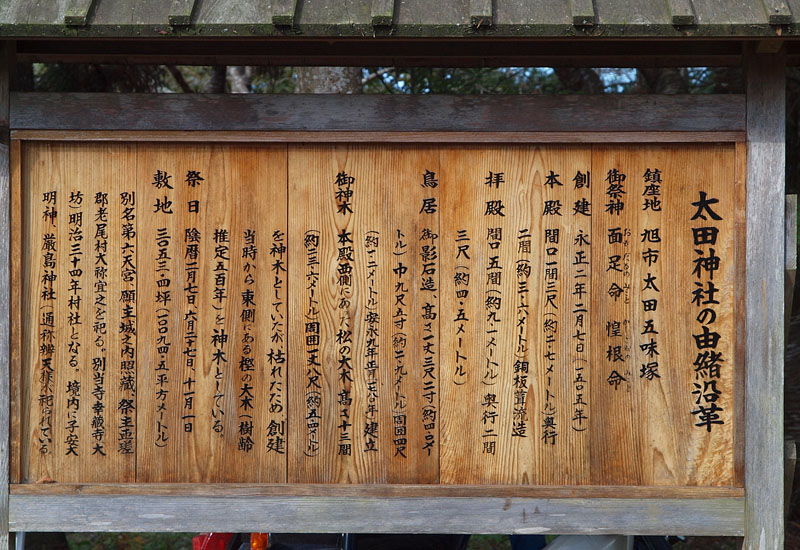 太田神社の由緒沿革
鎮座地 旭市太田五味塚
御祭神 面足命 惶根命
おもだるのみこと かしこねのみこと
創建 永正二年二月七日(一五〇五年)
本殿 間口一間三尺(約二・七メートル)奥行
二間(約三・六メートル)銅板葺流造
拝殿 間口五間(約九・一メートル)奥行二間
三尺(約四・五メートル)
鳥居 御影石造、高さ一丈三尺二寸(約四・〇メー
トル)巾九尺五寸(約二・九メートル)周囲四尺
(約一・二メートル)安永九年正月(一七八〇年)建立
御神木 本殿西側にあった松の大木、高さ十三間
(約二三・六メートル)周囲一丈八尺(約五・四メートル)
を神木としていたが、枯れたため、創建
当時から東側にある樫の大木(樹齢
推定五百年)を神木としている。
祭日 陰暦二月七日、六月二十七日、十一月一日
敷地 三〇五三・四坪(一〇〇九四・五平方メートル)
別名第六天宮、願主城之内照蔵、祭主匝瑳
郡老尾村大祢宜之を祀る。別当寺幸蔵寺(大
坊)明治三十四年村社となる。境内に子安大
明神、厳島神社(通称辨天様)が祀られている。